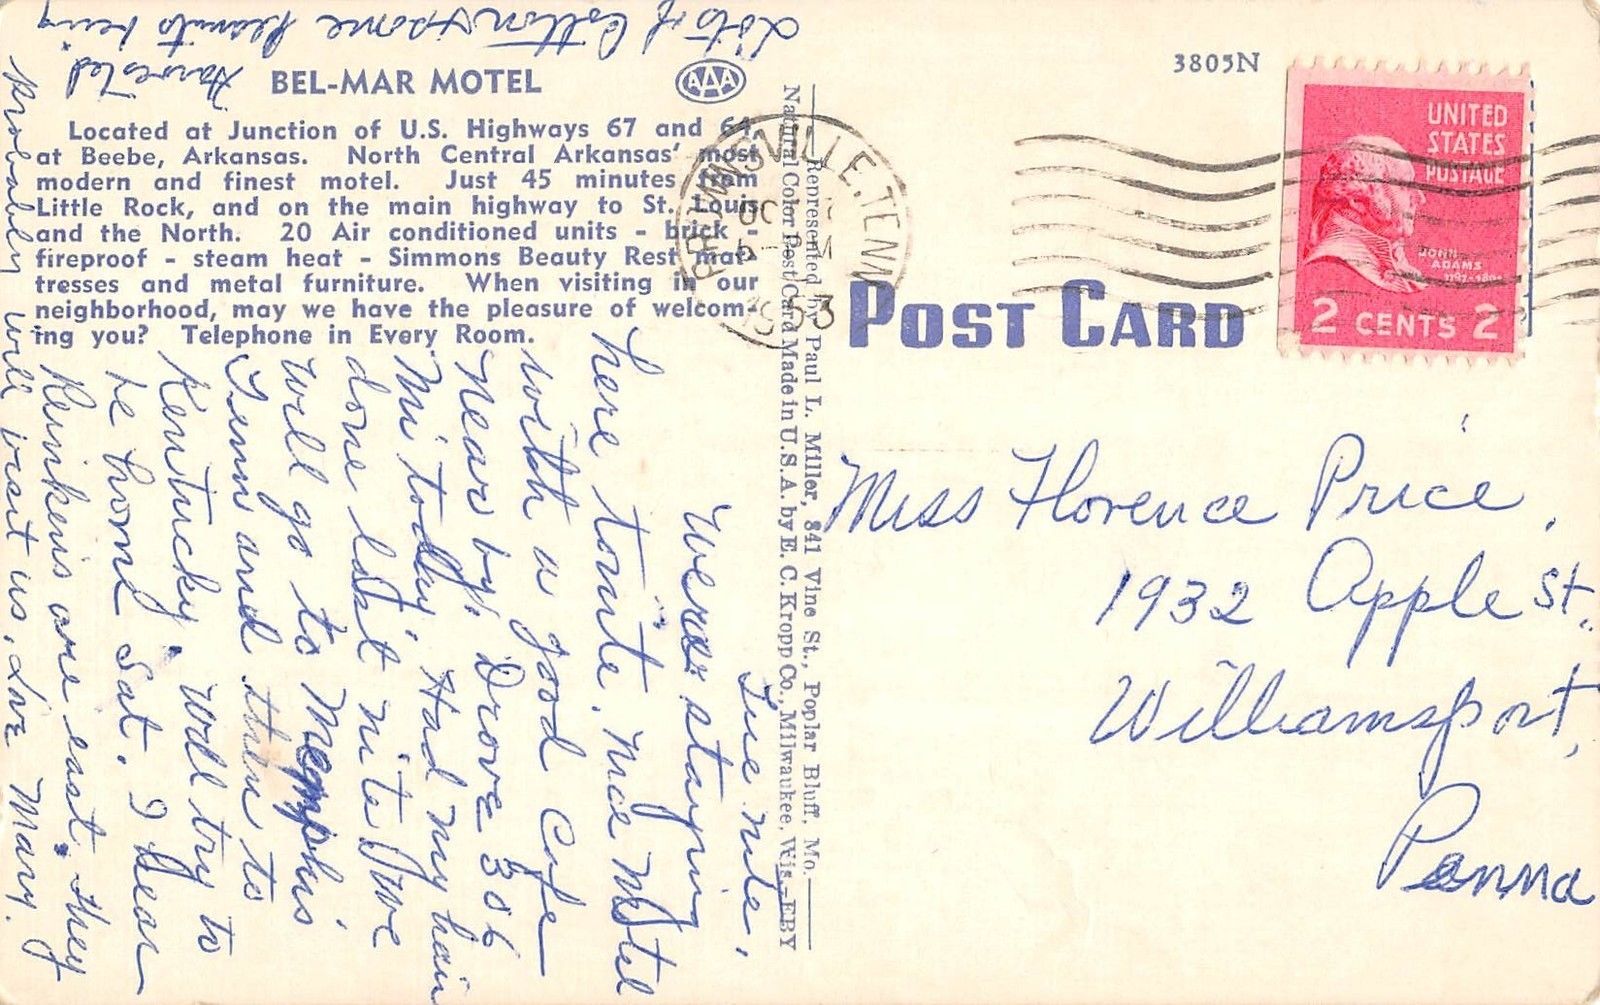 BEL-MAR MOTEL
AAA
Located at Junction of U.S. Highways 67 and 64,
at Beebe, Arkansas. North Central Arkansas' most
modern and finest motel. Just 45 minutes from
Little Rock, and on the main highway to St. Louis
and the North. 20 Air conditioned units - brick -
fireproof - steam heat - Simmons Beauty Rest mat-
tresses and metal furniture. When visiting in our
neighborhood, may we have the pleasure of welcom-
ing you? Telephone in Every Room.
Tue nite,
Were staying
here tonite. Nice Motel
with a good Cafe
near by. Drove 306
Mi today. Had my hair
done last nite & we
will go to Memphis
Tenn and then to
Kentucky. Will try to
be home Sat. I hear
are east. They
probably will visit us. Love Mary.
Lots of Cotton & some peanuts being
harvested
Represented by Paul L. Miller, 841 Vine St., Poplar Bluff, Mo.
Natural Color Post Card Made in U.S.A. by E. C. Kropp Co., Milwaukee, Wis.—EBY
3805N
UNITED
STATES
POSTAGE
JOHN
ADAMS
1797-1801
2 CENTS 2
VILLE, TENN
OC
1953
POST CARD
Miss Florence Price,
1932 Apple St.,
Williamsport,
Penna